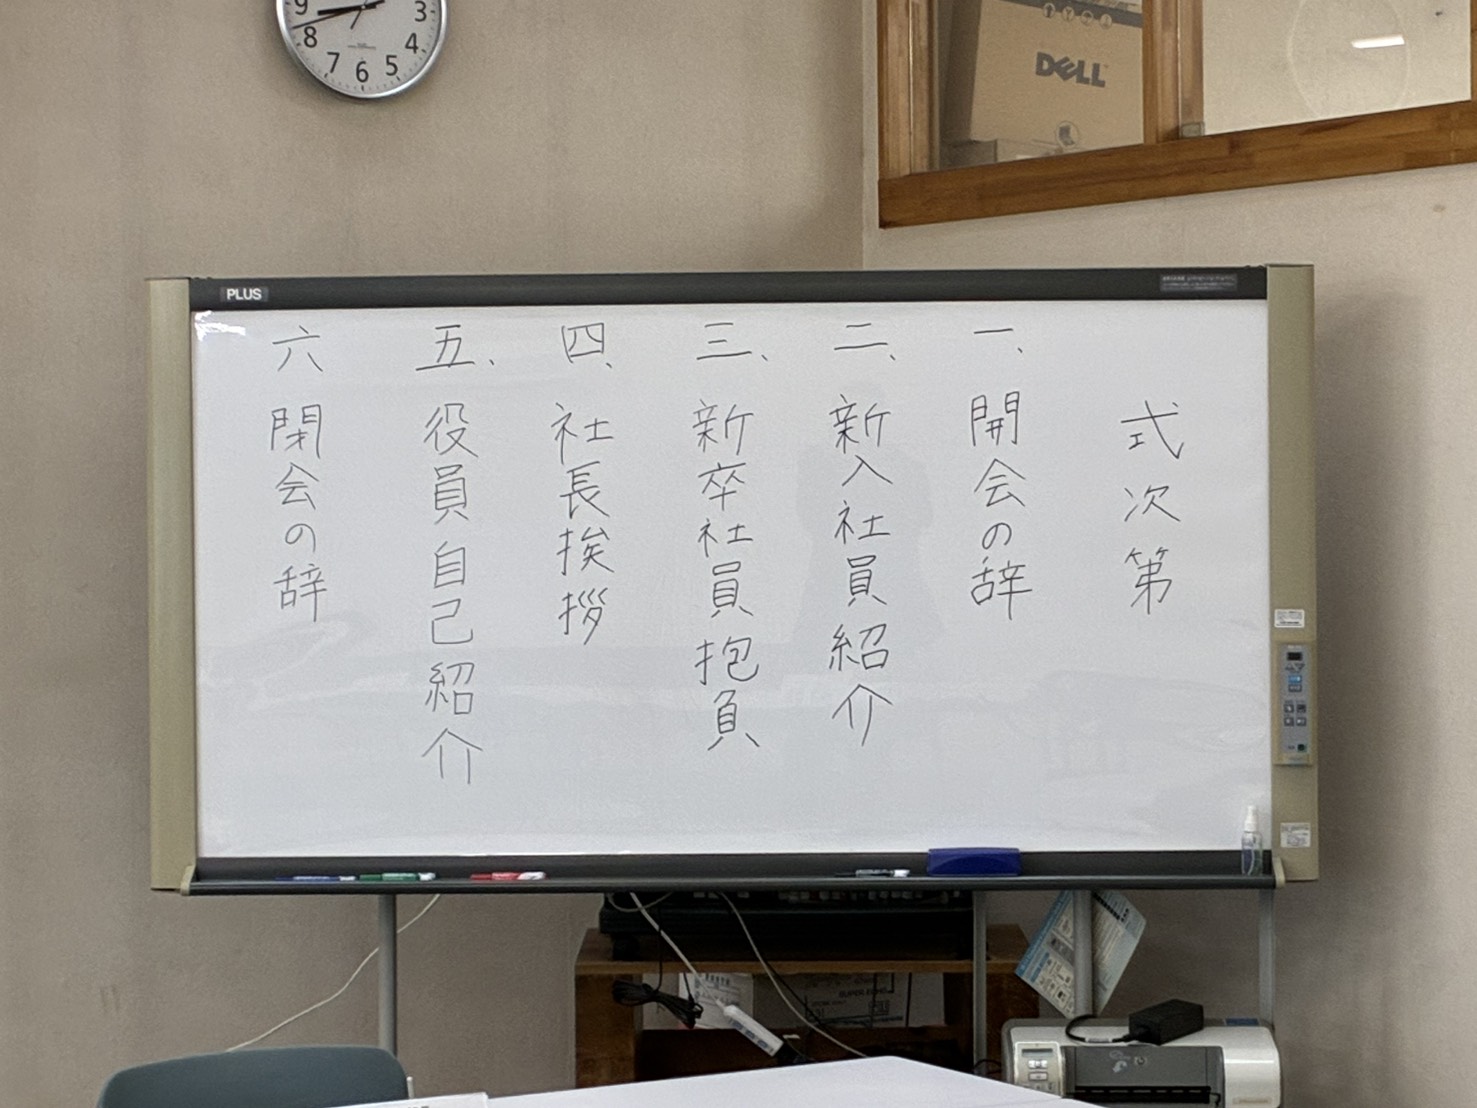 9
8
7
6
5
4
3
DELL
PLUS
式次第
一、開会の辞
二、新入社員紹介
三、新卒社員抱負
四、社長挨拶
五、役員自己紹介
六 閉会の辞